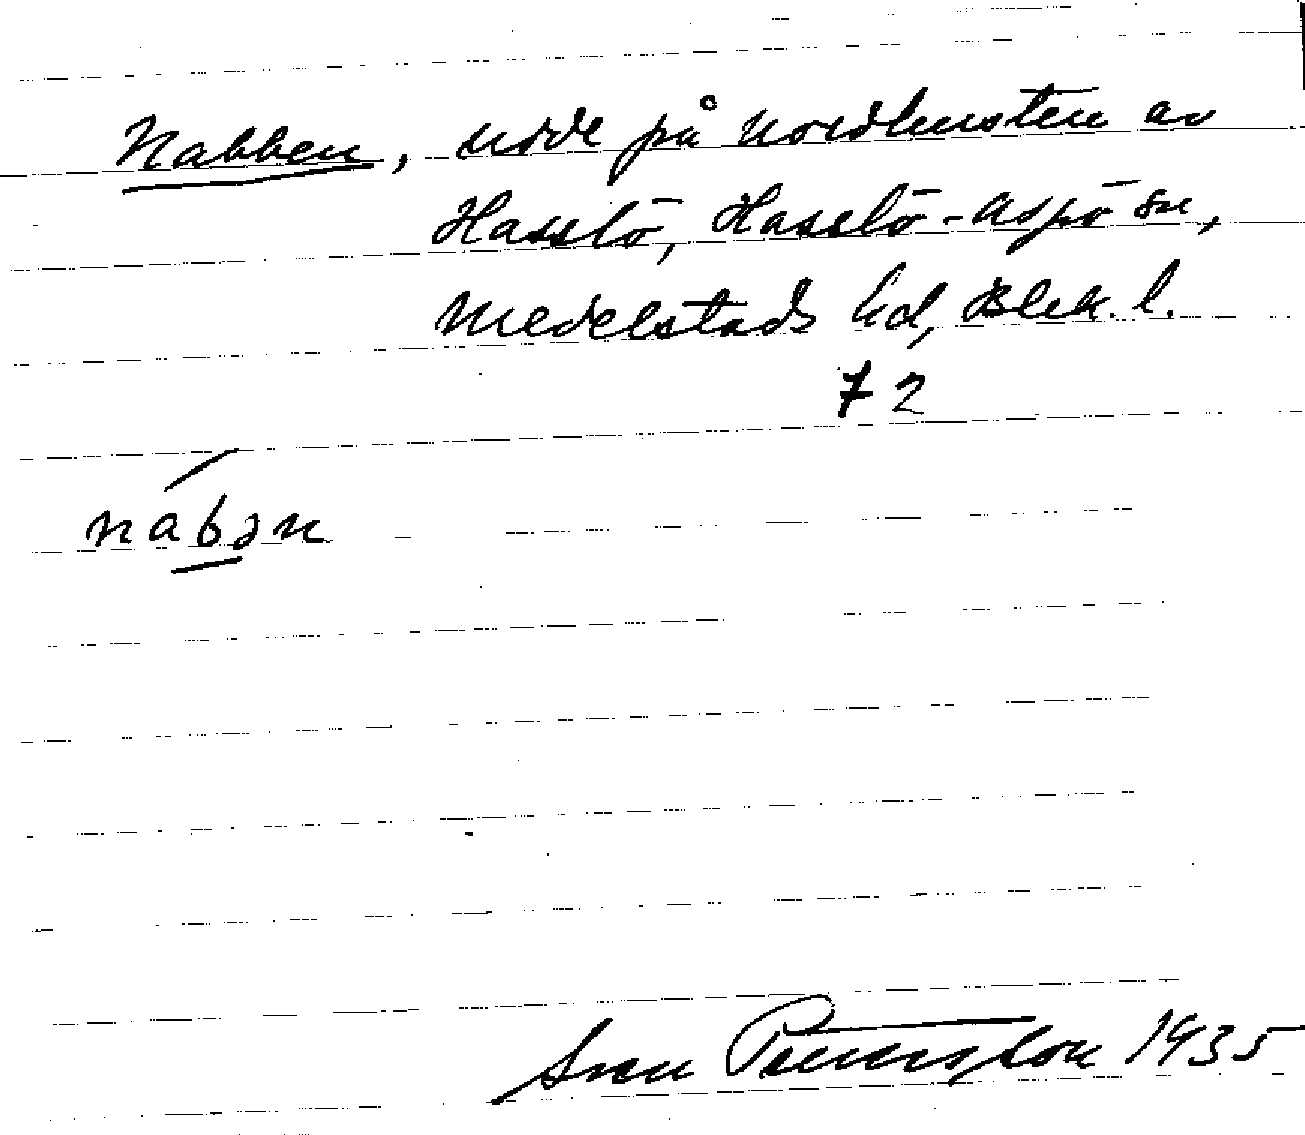 Nabben, udde på nordkusten av
Hasslö, Hasslö-Aspö sn,
Medelstads hd, Blek. l.
72
nábən
Sven 1935